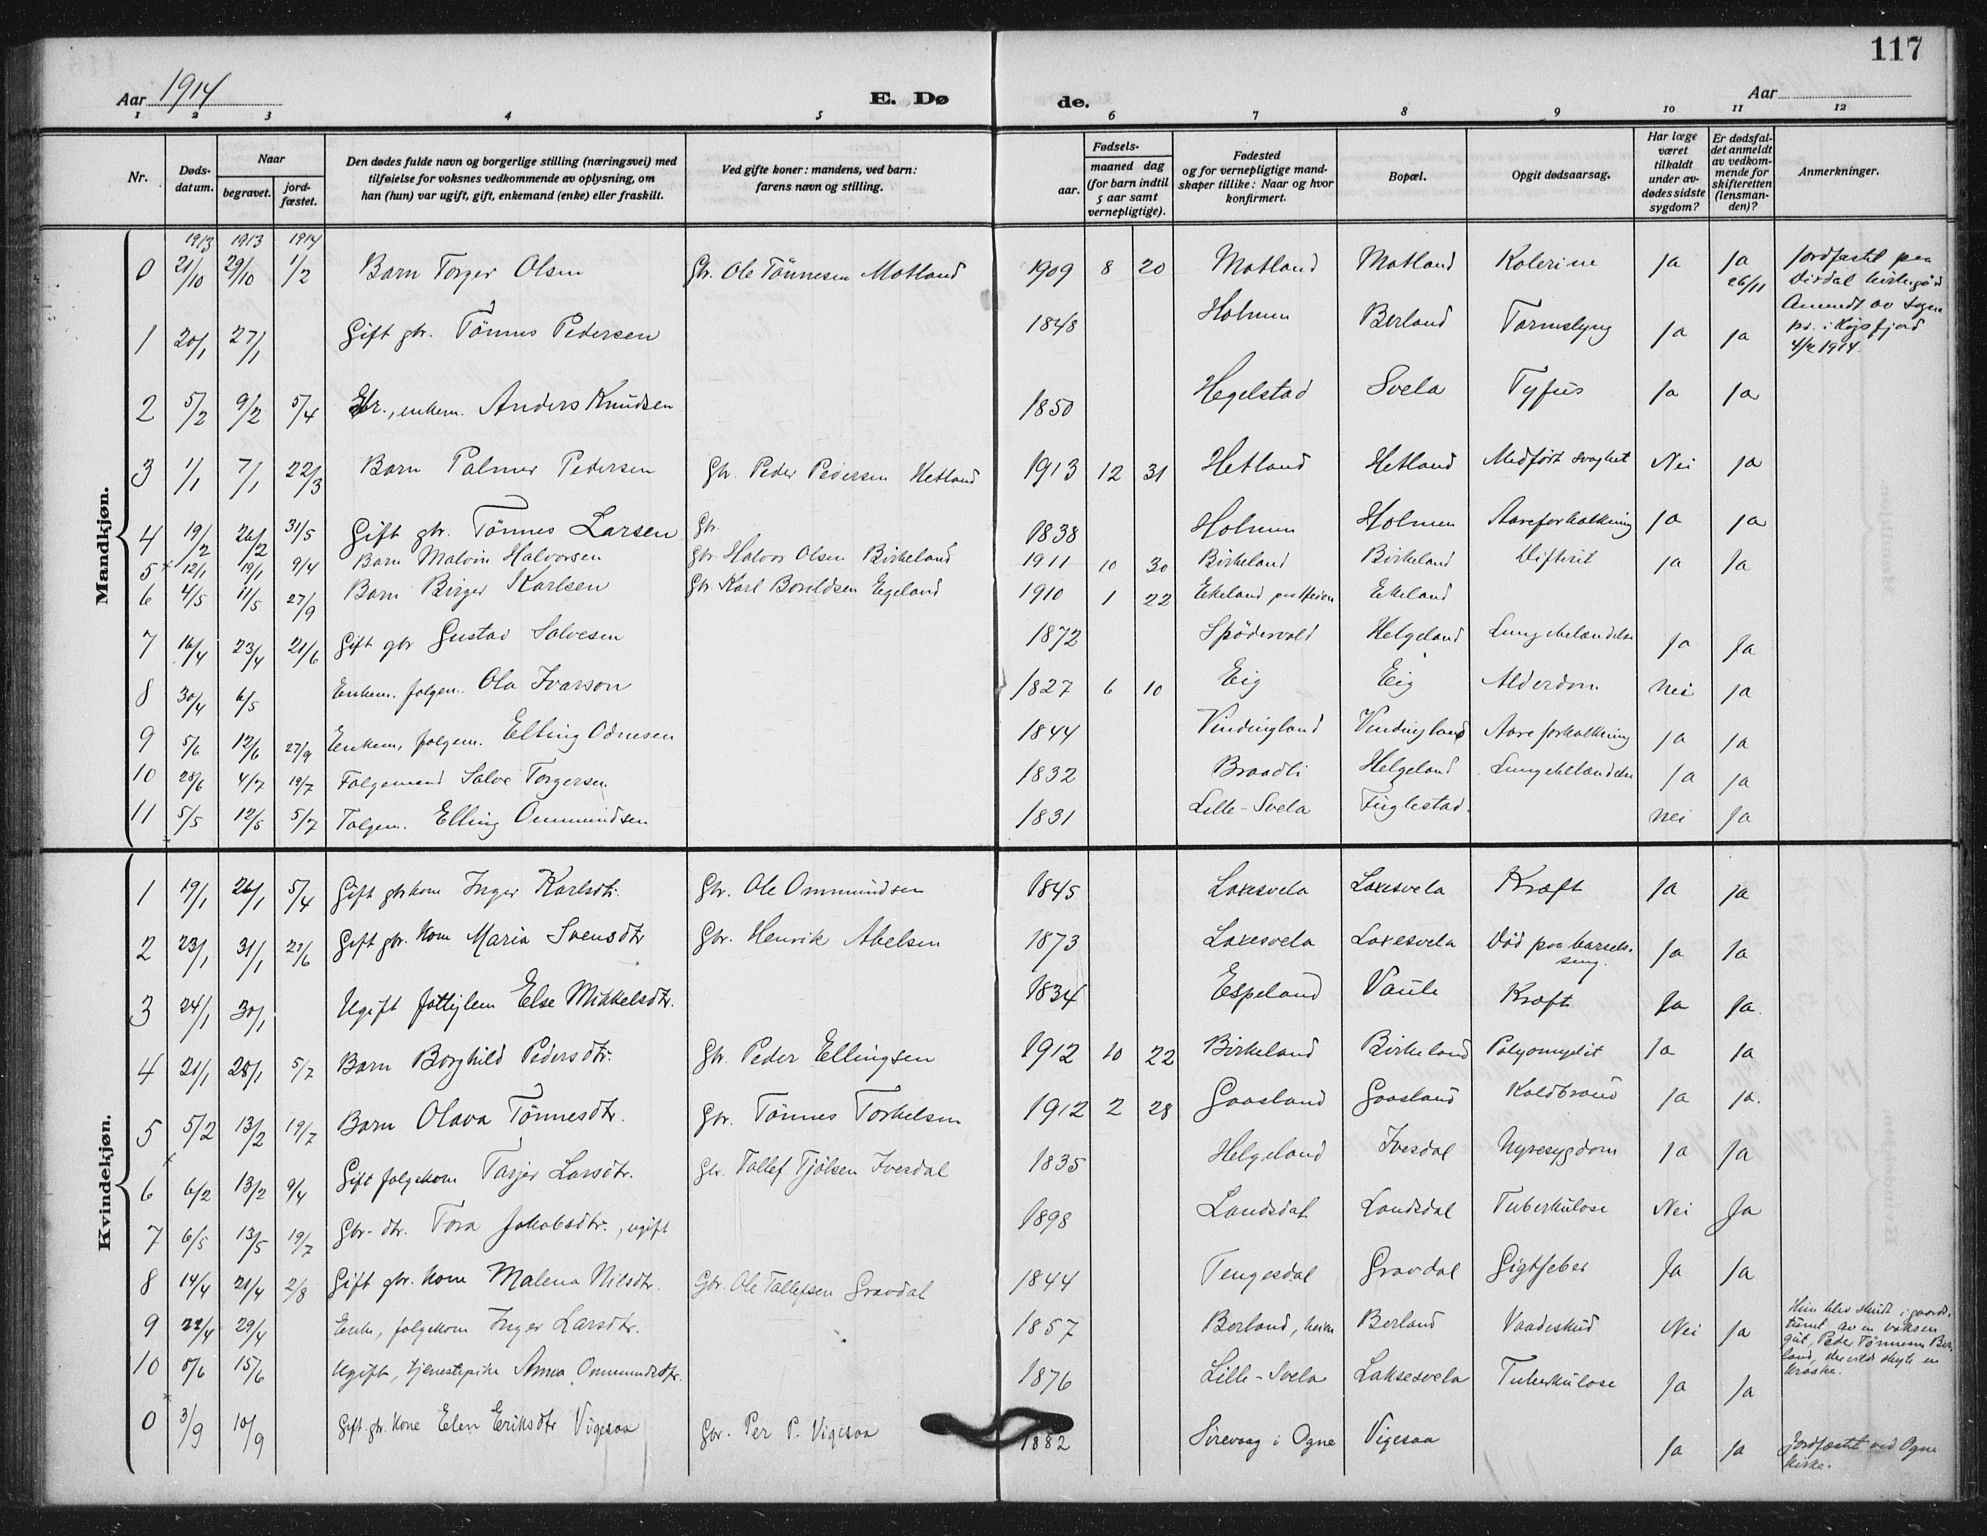 117
Aar 1914 E. Døde. Aar
1 2 3 4 5 6 7 8 9 10 11 12
Nr. Døds-datum. Naar begravet. jord-fæstet. Den dødes fulde navn og borgerlige stilling (næringsvei) med tilføielse for voksnes vedkommende av oplysning, om han (hun) var ugift, gift, enkemand (enke) eller fraskilt. Ved gifte koner: mandens, ved barn: farens navn og stilling. Fødsels- aar. maaned dag (for barn indtil 5 aar samt vernepligtige). Fødested og for vernepligtige mandskaper tillike: Naar og hvor konfirmert. Bopæl. Opgit dødsaarsag. Har læge været tilkaldt under avdødes sidste sygdom? Er dødsfaldet anmeldt av vedkommende for skifteretten (lensmanden)? Anmerkninger.
Mandkjøn.
1913 1913 1914
0 21/10 29/10 1/2 Barn Torger Olsen Gbr. Ole Tønnesen Matland 1909 8 20 Matland Matland Kolerine Ja Ja 26/11 Jordfæstet paa Dirdal kirkegård
1 20/1 27/1 Gift gbr. Tønnes Pedersen 1848 Holmen Berland Tarmslyng Ja Ja Anmeldt av sogne pr. i Høgsfjord 4/2 1914.
2 5/2 9/2 5/4 Gbr., enkem. Anders Knudsen 1850 Hegelstad Svela Tyfus Ja Ja
3 1/1 7/1 22/3 Barn Palmer Pedersen Gbr. Peder Pedersen Hetland 1913 12 31 Hetland Hetland Medfødt svaghet Nei Ja
4 19/2 26/2 31/5 Gift gbr. Tønnes Larsen Gbr. 1838 Holmen Holmen Aareforkalkning Ja Ja
5 12/1 19/1 9/4 Barn Malvin Halvorsen Gbr. Halvor Olsen Birkeland 1911 10 30 Birkeland Birkeland Difterit Ja Ja
6 4/5 11/5 27/9 Barn Birger Karlsen Gbr. Karl Boroldsen Egeland 1910 1 22 Ekeland paa Heien Ekeland
7 16/4 23/4 21/6 Gift gbr Gustav Salvesen 1872 Spødervold Helgeland Lungebetændelse Ja Ja
8 30/4 6/5 Enkem. folgem. Ola Ivarson 1827 6 10 Eig Eig Alderdom Nei Ja
9 5/6 12/6 27/9 Enkem, folgem. Elling Odnesen 1844 Vindingland Vindingland Aareforkalkning Ja Ja
10 28/6 4/7 19/7 Folgemand Salve Torgersen 1832 Braadli Helgeland Lungebetændelse Ja Ja
11 5/5 12/5 5/7 Folgem. Elling Ommundsen 1831 Lille-Svela Fuglestad. Nei Ja
Kvindekjøn.
1 19/1 26/1 5/4 Gift gbrkone Inger Karlsdtr. Gbr. Ole Ommundsen 1845 Laxesvela Laxesvela Kræft Ja Ja
2 23/1 31/1 21/6 Gift gbr. kone Maria Svensdtr Gbr. Henrik Abelsen 1873 Laxesvela Laxesvela Død paa barselseng. Ja Ja
3 24/1 30/1 Ugift fattiglem Else Mikkelsdtr. 1834 Espeland Vaule Kræft Ja Ja.
4 21/1 28/1 5/7 Barn Borghild Pedersdtr. Gbr. Peder Ellingsen 1912 10 22 Birkeland Birkeland Polyomyelit Ja Ja
5 5/2 13/2 19/7 Barn Olava Tønnesdtr. Gbr. Tønnes Torkelsen 1912 2 28 Gaasland Gaasland Koldbrand Ja Ja.
6 6/2 13/2 9/4 Gift folgekone Tarjer Larsdtr. Gbr. Tallef Tjølsen Ivesdal 1835 Helgeland Ivesdal Nyresygdom Ja Ja
7 6/5 13/5 19/7 Gbr-dtr. Tora Jakobsdtr., ugift 1898 Landsdal Landsdal Tuberkulose Nei Ja
8 14/4 21/4 2/8 Gift gbr. kone Malena Nilsdtr. Gbr. Ole Tallefsen Gravdal 1844 Tengesdal Gravdal Gigtfeber Ja Ja
9 22/4 29/4 Enke, folgekone Inger Larsdtr. 1857 Berland, heien Berland Vaadeskud Nei Ja Hun blev skudt i gaardstunet av en voksen gut, Peder Tønnesen Berland, der vilde skyte en kraake.
10 5/6 15/6 Ugift, tjenestepike Anna Ommundsdtr. 1876 Lille-Svela Laksesvela Tuberkulose Ja Ja
0 3/9 10/9 Gift gbr. kone Elen Eriksdtr Vigesaa Gbr. Per P. Vigesaa 1882 Sirevaag i Ogne Vigesaa Ja Ja Jordfæstet ved Ogne kirke.